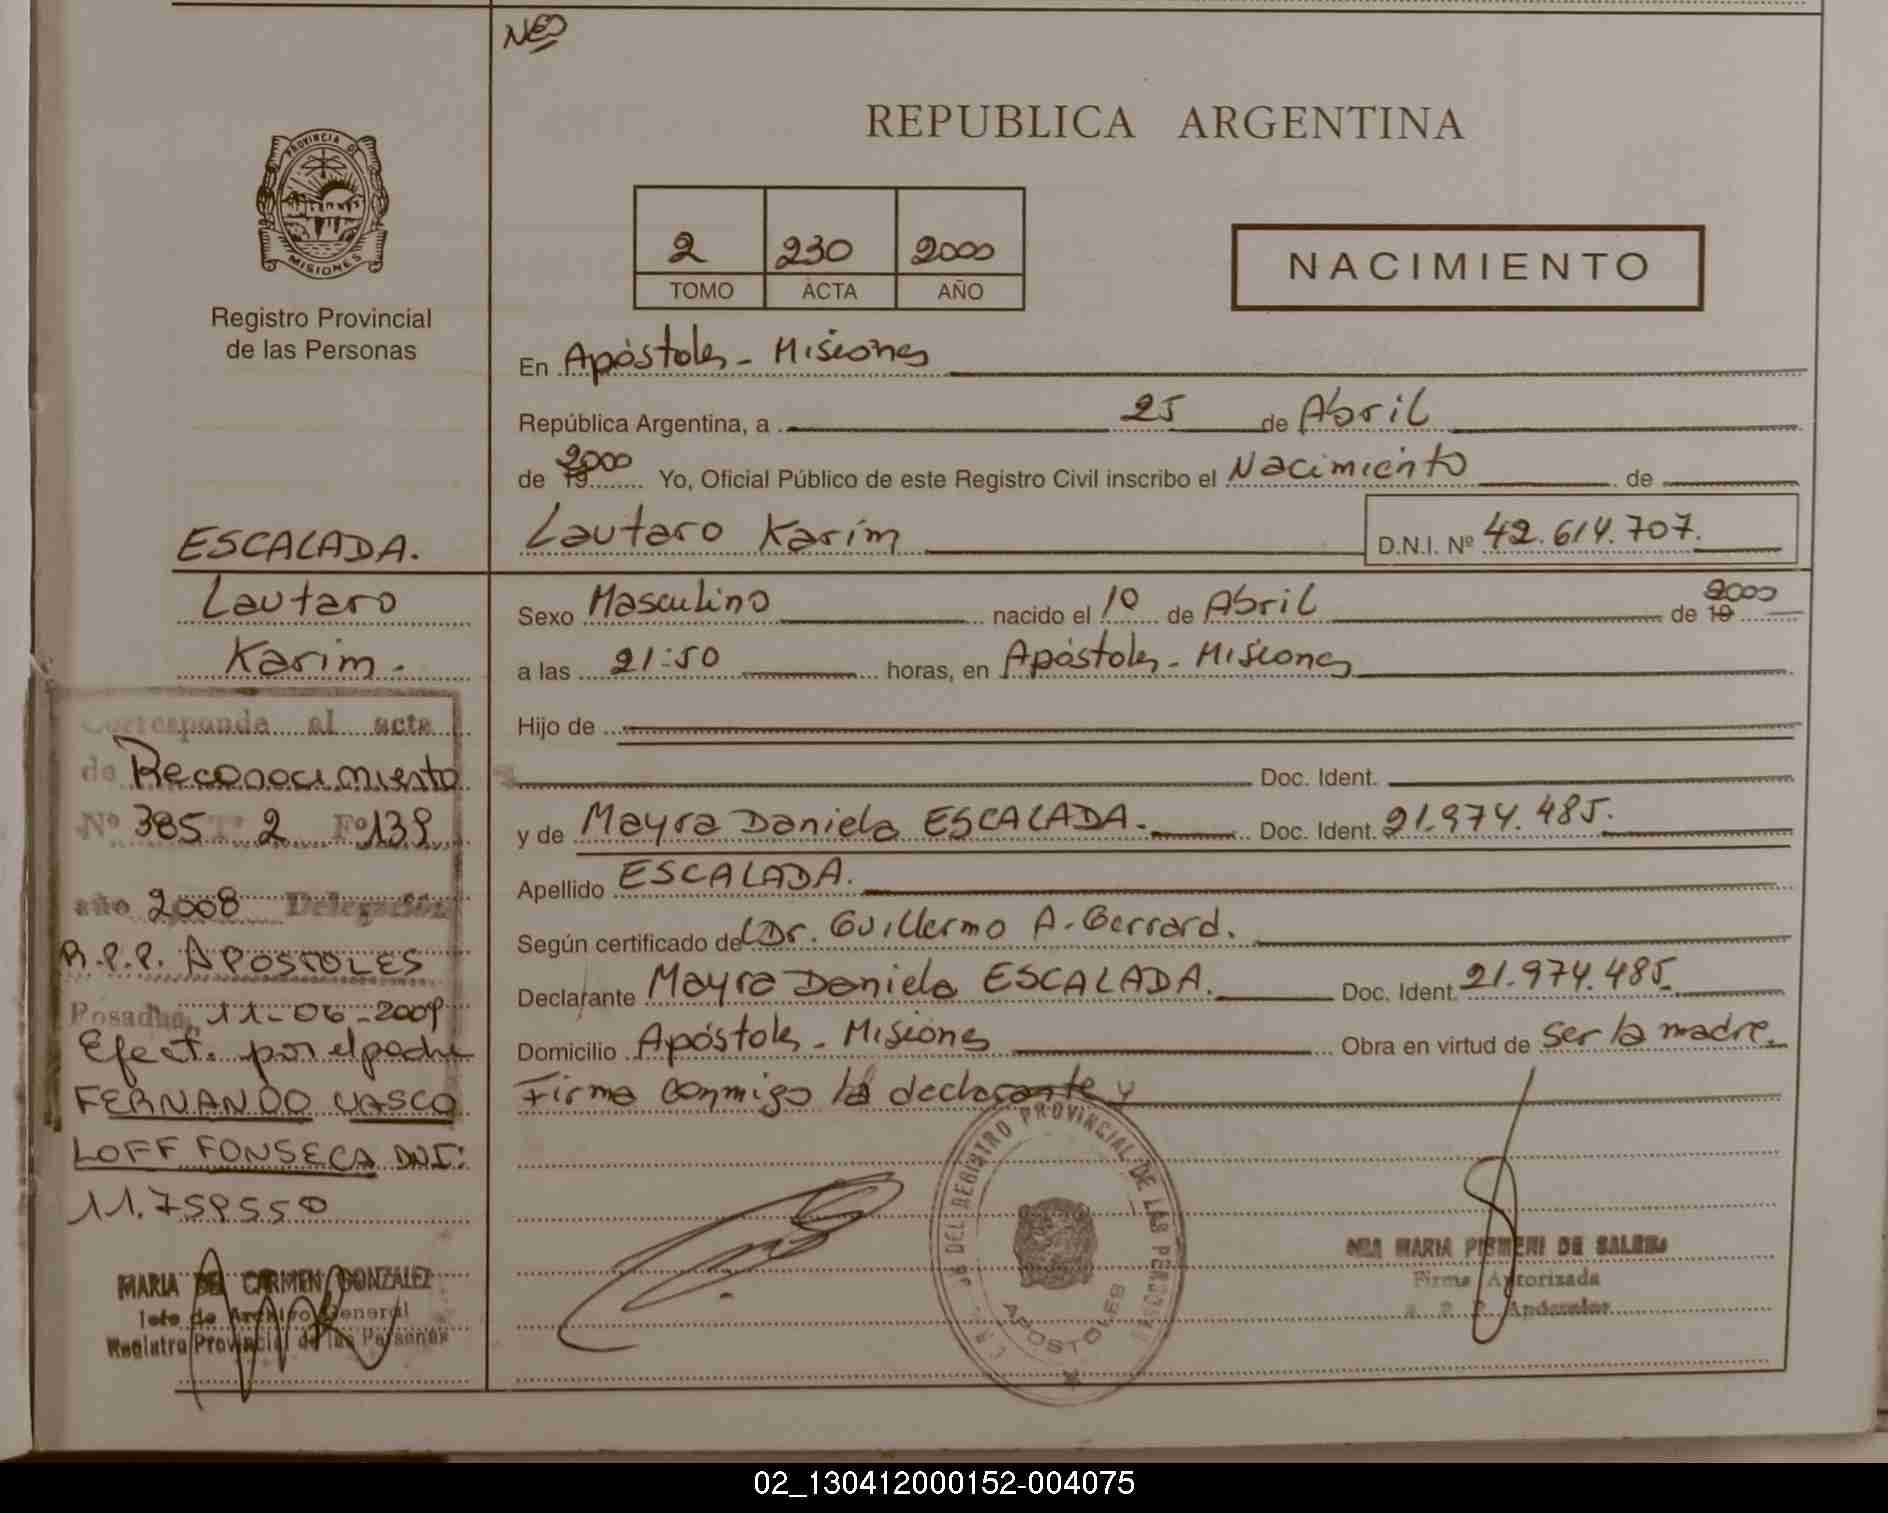 NEO
REPUBLICA ARGENTINA
PROVINCIA DE
MISIONES
Registro Provincial
de las Personas
2 230 2000
TOMO ACTA AÑO
NACIMIENTO
En Apóstoles - Misiones
República Argentina, a 25 de Abril
de 19 2000 Yo, Oficial Público de este Registro Civil inscribo el Nacimiento de
Lautaro Karim D.N.I. Nº 42.614.707.
ESCALADA.
Lautaro
Karim.
Sexo Masculino nacido el 10 de Abril de 19 2000
a las 21:50 horas, en Apóstoles - Misiones
Hijo de
Doc. Ident.
y de Mayra Daniela ESCALADA. Doc. Ident. 21.974.485.
Apellido ESCALADA.
Según certificado de Dr. Guillermo A. Gerrard.
Declarante Mayra Daniela ESCALADA. Doc. Ident. 21.974.485.
Domicilio Apóstoles - Misiones Obra en virtud de ser la madre.
Firma conmigo la declarante y
Corresponde al acta
de Reconocimiento
Nº 385 Tº 2 Fº 139
año 2008 Delegación
R.P.P. APOSTOLES
Posadas, 11-06-2009
Efect. por el padre
FERNANDO VASCO
LOFF FONSECA DNI:
11.759550
MARIA DEL CARMEN GONZALEZ
Jefe de Archivo General
Registro Provincial de las Personas
DEL REGISTRO PROVINCIAL DE LAS PERSONAS
APOSTOLES
MARIA DE
Firma Autorizada
02_130412000152-004075